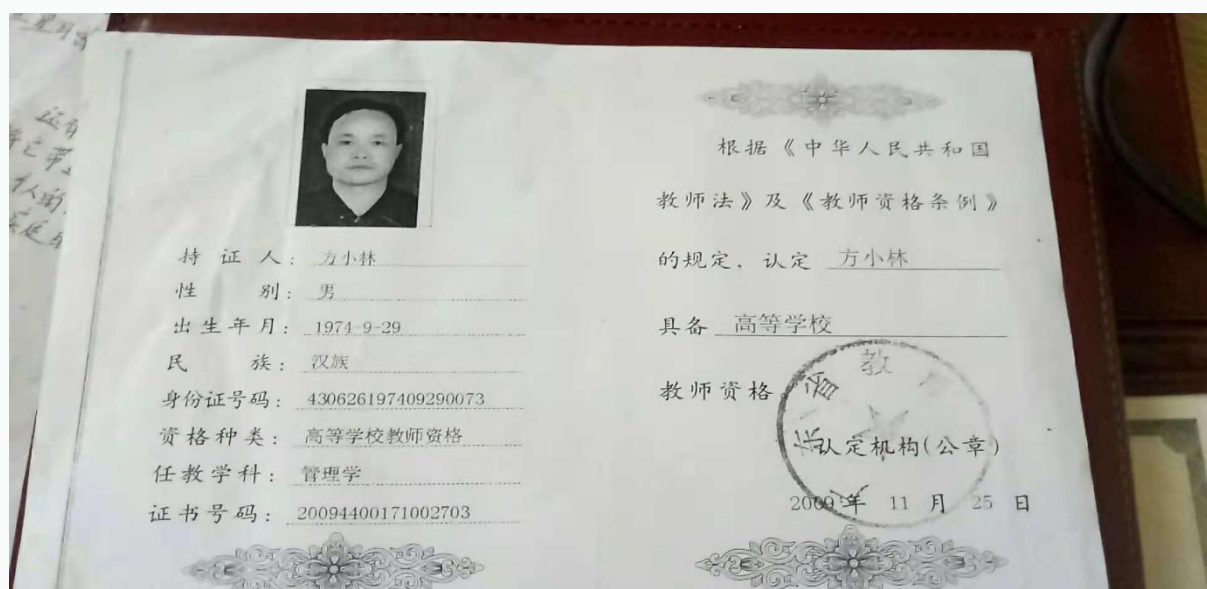 持证人：方小林
性别：男
出生年月：1974-9-29
民族：汉族
身份证号码：430626197409290073
资格种类：高等学校教师资格
任教学科：管理学
证书号码：20094400171002703
根据《中华人民共和国
教师法》及《教师资格条例》
的规定，认定 方小林
具备 高等学校
教师资格
省教
认定机构(公章)
2009年 11月 25日